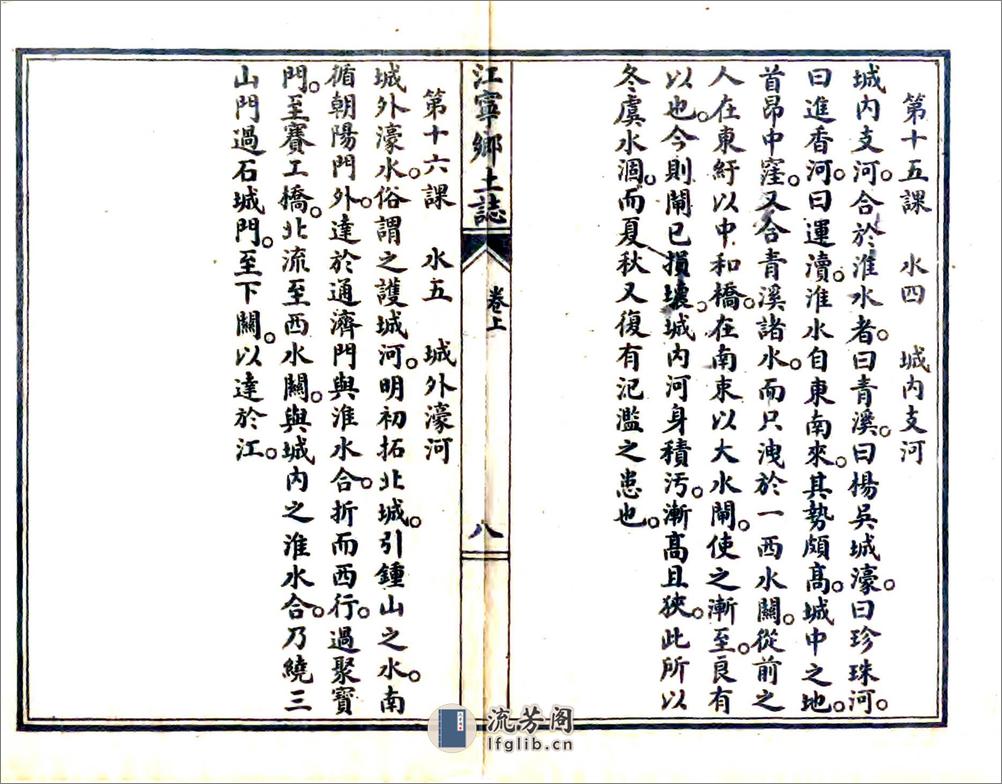 第十五課　水四　城内支河
城内支河。合於淮水者。曰青溪。曰楊吳城濠。曰珍珠河。
曰進香河。曰運瀆。淮水自東南來。其勢頗高。城中之地。
首昂中窪。又合青溪諸水。而只洩於一西水關。從前之
人在東紆以中和橋。在南束以大水閘。使之漸至。良有
以也。今則閘已損壞。城内河身積汚。漸高且狹。此所以
冬虞水涸。而夏秋又復有氾濫之患也。
江寧鄉土誌
卷上
八
第十六課　水五　城外濠河
城外濠水。俗謂之護城河。明初拓北城。引鍾山之水。南
循朝陽門外。達於通濟門與淮水合。折而西行。過聚寶
門。至賽工橋。北流至西水關。與城内之淮水合。乃繞三
山門過石城門。至下關。以達於江。
流芳阁
lfglib.cn